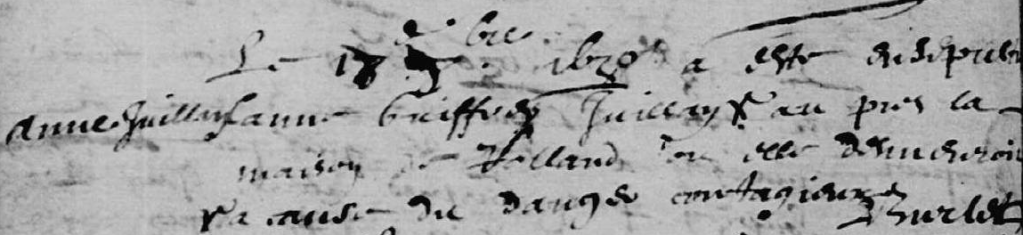 Le 17 bre 1630 a esté ensepuel
anne Juillay anne Guiffrey Juillay au pres la
maison de Rolland ou elle demeuroit
a cause du danger contagieux Burlet